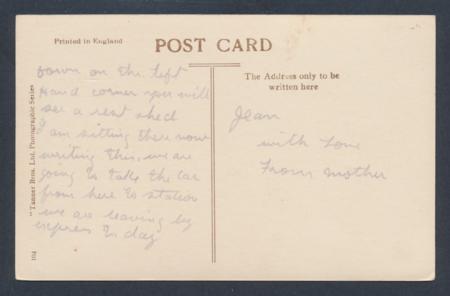 Printed in England
POST CARD
down on the left
hand corner you will
see a rest shed
I am sitting there now
writing this, we are
going to take the car
from here to station
we are leaving by
express to day
The Address only to be
written here
Jean
with love
From mother
"Tanner Bros. Ltd. Photographic Series
104